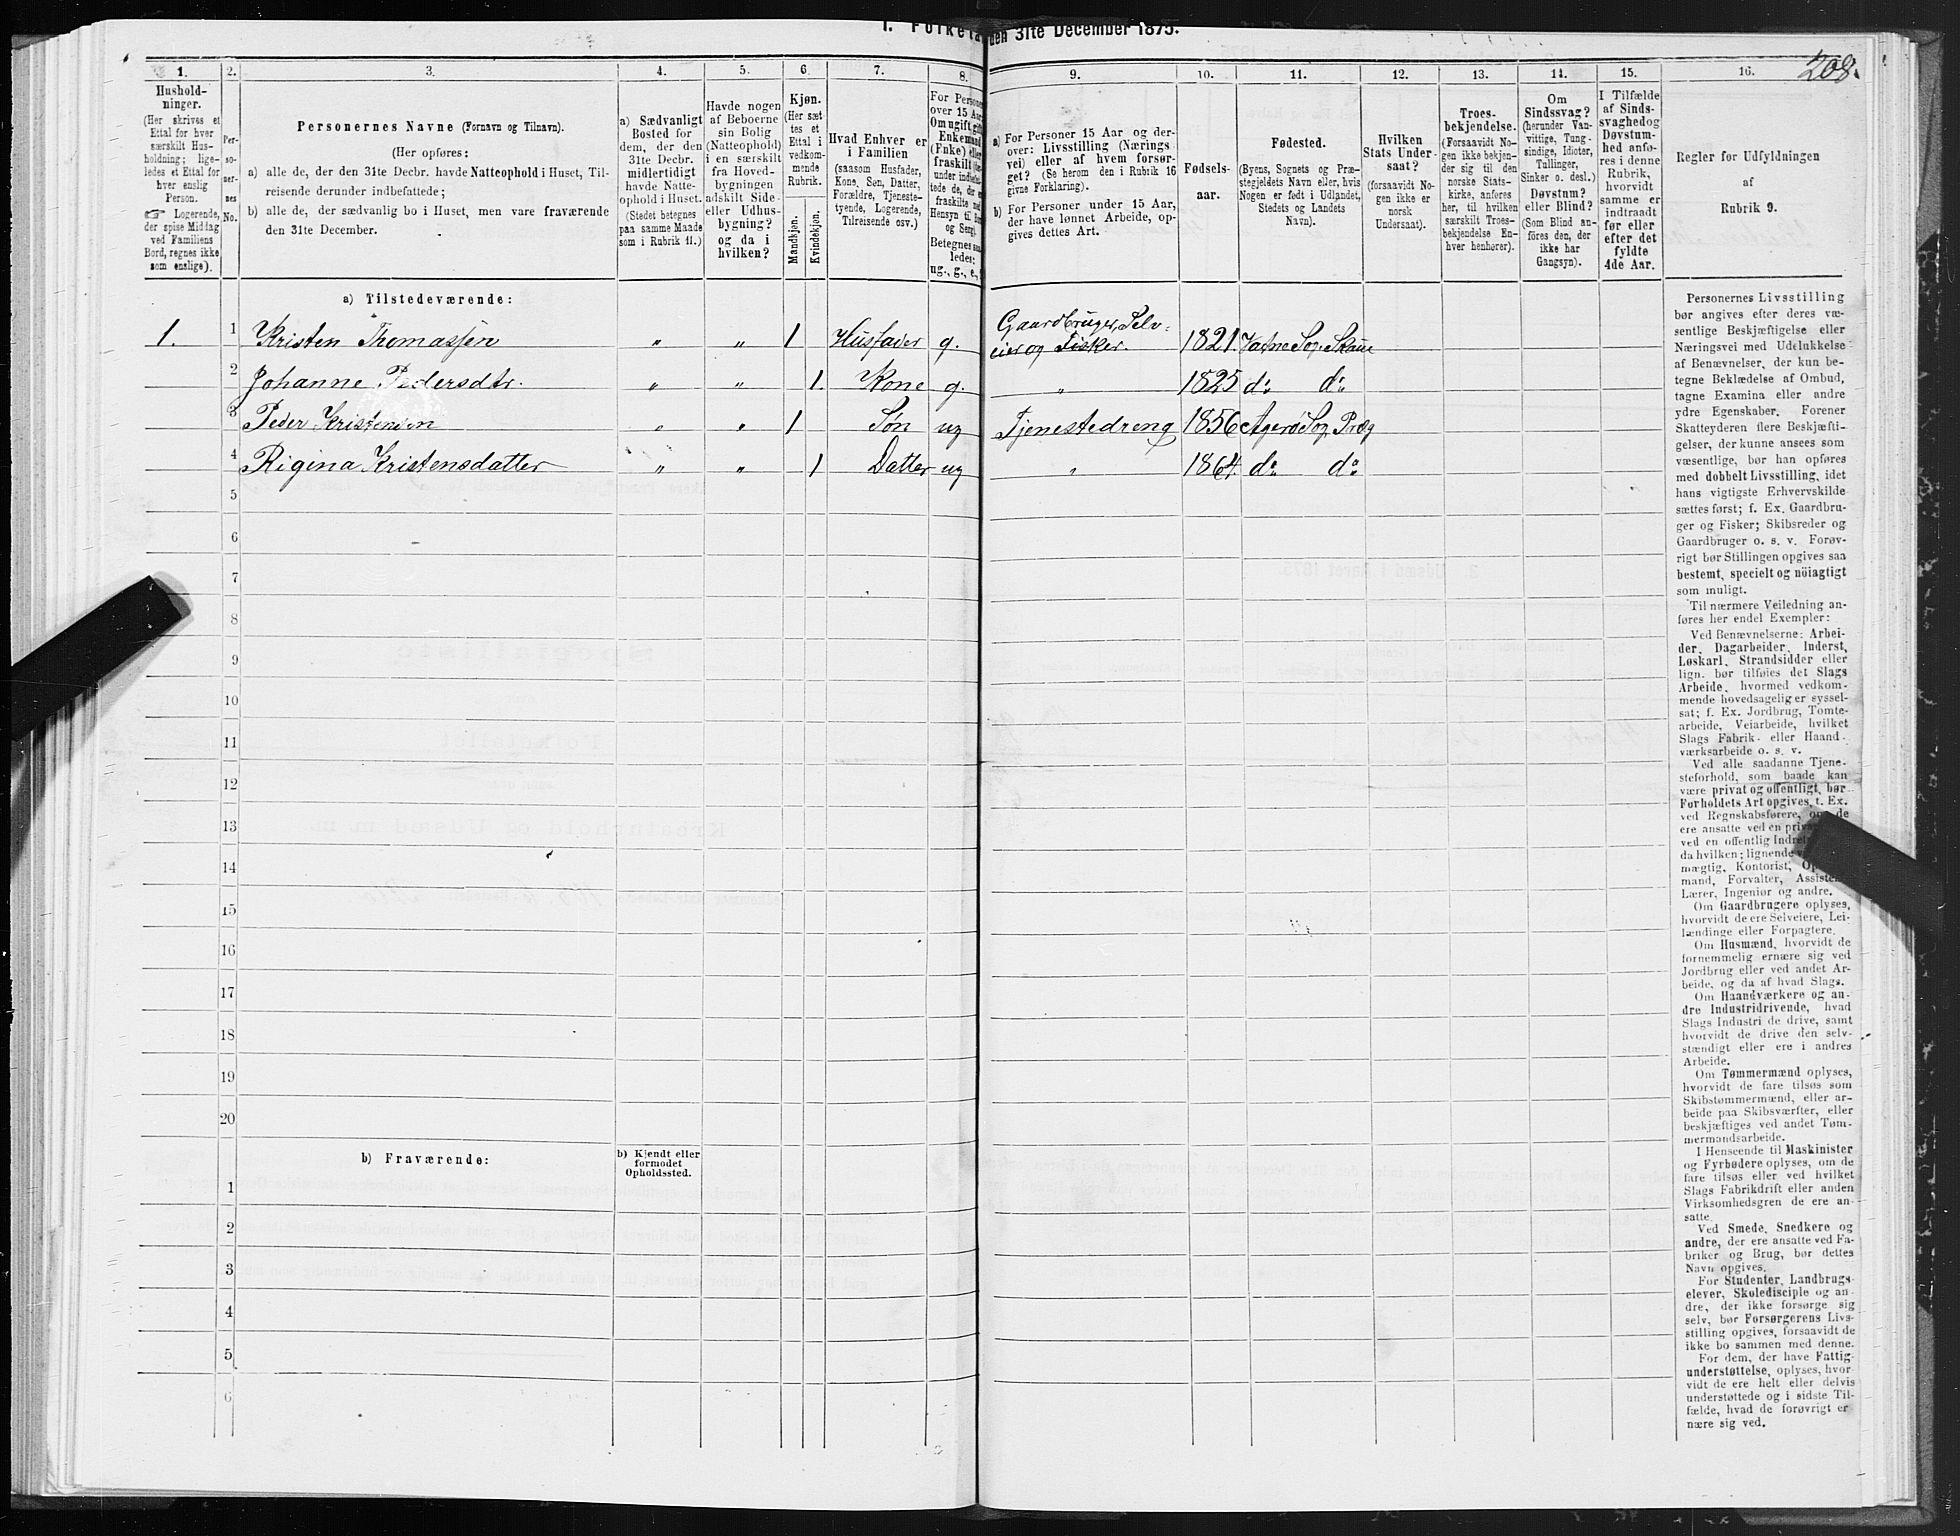 1. Folketal den 31te December 1875.
208.
1. 2. 3. 4. 5. 6. 7. 8. 9. 10. 11. 12. 13. 14. 15. 16.
Hushold-
ninger.
(Her skrives et
Ettal for hver
særskilt Hus-
holdning; lige-
ledes et Ettal for
hver enslig
Person.
☞ Logerende,
der spise Middag
ved Familiens
Bord, regnes ikke
som enslige).
Per-
so-
ner-
nes
No.
Personernes Navne (Fornavn og Tilnavn).
(Her opføres:
a) alle de, der den 31te Decbr. havde Natteophold i Huset, Til-
reisende derunder indbefattede;
b) alle de, der sædvanlig bo i Huset, men vare fraværende
den 31te December.
a) Sædvanligt
Bosted for
dem, der den
31te Decbr.
midlertidigt
havde Natte-
ophold i Huset.
(Stedet betegnes
paa samme Maade
som i Rubrik 11.)
Havde nogen
af Beboerne
sin Bolig
(Natteophold)
i en særskilt
fra Hoved-
bygningen
adskilt Side-
eller Udhus-
bygning?
og da i
hvilken?
Kjøn.
(Her sæt-
tes et
Ettal i
vedkom-
mende
Rubrik.
Mandkjøn.
Kvindekjøn.
Hvad Enhver er
i Familien
(saasom Husfader,
Kone, Søn, Datter,
Forældre, Tjeneste-
tyende, Logerende,
Tilreisende osv.)
For Personer
over 15 Aar:
Om ugift, gift,
Enkemand
(Enke) eller
fraskilt
Betegnes saa-
ledes:
ug., g., e.,
a) For Personer 15 Aar og der-
over: Livsstilling (Nærings
vei) eller af hvem forsør-
get? (Se herom den i Rubrik 16
givne Forklaring).
b) For Personer under 15 Aar,
der have lønnet Arbeide, op-
gives dettes Art.
Fødsels-
aar.
Fødested.
(Byens, Sognets og Præ-
stegjeldets Navn eller, hvis
Nogen er født i Udlandet,
Stedets og Landets
Navn).
Hvilken
Stats Under-
saat?
(forsaavidt No-
gen ikke er
norsk
Undersaat).
Troes-
bekjendelse.
(Forsaavidt No-
gen ikke bekjen-
der sig til den
norske Stats-
kirke, anføres
her, til hvilken
særskilt Troes-
bekjendelse En-
hver henhører).
Om
Sindssvag?
(herunder Van-
vittige, Tung-
sindige, Idioter,
Tullinger,
Sinker o. desl.)
Døvstum?
eller Blind?
(Som Blind an-
føres den, der
ikke har
Gangsyn).
I Tilfælde
af Sinds-
svaghed og
Døvstum-
hed anfø-
res i denne
Rubrik,
hvorvidt
samme er
indtraadt
før eller
efter det
fyldte
4de Aar.
Regler for Udfyldningen
af
Rubrik 9.
a) Tilstedeværende:
1. 1 Kristen Thomassen " " 1 Husfader g. Gaardbruger, Selv-
eier og Fisker. 1821. Vatne So. Skaue
2 Johanne Pedersdtr. " " 1. Kone g. " 1825 do do
3 Peder Kristensen " " 1 Søn ug Tjenestedreng 1856 Agerø Sog Præg
4 Rigina Kristensdatter " " 1 Datter ug " 1864. do do
5
6
7
8
9
10
11
12
13
14
15
16
17
18
19
20
b) Fraværende:
b) Kjendt eller
formodet
Opholdssted.
1
2
3
4
5
6
Personernes Livsstilling
bør angives efter deres væ-
sentlige Beskjæftigelse eller
Næringsvei med Udelukkelse
af Benævnelser, der kun be-
tegne Beklædelse af Ombud,
tagne Examina eller andre
ydre Egenskaber. Forener
Skatteyderen flere Beskjæfti-
gelser, der kunne ansees som
væsentlige, bør han opføres
med dobbelt Livsstilling, idet
hans vigtigste Erhvervskilde
sættes først; f. Ex. Gaardbru-
ger og Fisker; Skibsreder og
Gaardbruger o. s. v. Forøv-
rigt bør Stillingen opgives saa
bestemt, specielt og nöiagtigt
som muligt.
Til nærmere Veiledning an-
føres her endel Exempler:
Ved Benævnelserne: Arbei-
der, Dagarbeider, Inderst,
Løskarl, Strandsidder eller
lign. bør tilføies det Slags
Arbeide, hvormed vedkom-
mende hovedsagelig er syssel-
sat; f. Ex. Jordbrug, Tomte-
arbeide, Veiarbeide, hvilket
Slags Fabrik- eller Haand-
værksarbeide o. s. v.
Ved alle saadanne Tjene-
steforhold, som baade kan
være privat og offentligt, bør
Forholdets Art opgives, t. Ex.
ved Regnskabsførere, om de
ere ansatte ved en privat
ved en offentlig
da hvilken; lignende
mægtig, Kontorist,
mand, Forvalter, Assistent,
Lærer, Ingeniør og andre.
Om Gaardbrugere oplyses,
hvorvidt de ere Selveiere, Lei-
lændinge eller Forpagtere.
Om Husmænd, hvorvidt de
fornemmelig ernære sig ved
Jordbrug eller ved andet Ar-
beide, og da af hvad Slags.
Om Haandværkere og an-
dre Industridrivende, hvad
Slags Industri de drive, samt
hvorvidt de drive den selv-
stændigt eller ere i andres
Arbeide.
Om Tømmermænd oplyses,
hvorvidt de fare tilsøs som
Skibstømmermænd, eller ar-
beide paa Skibsværfter, eller
beskjæftiges ved andet Tøm-
mermandsarbeide.
I Henseende til Maskinister
og Fyrbødere oplyses, om de
fare tilsøs eller ved hvilket
Slags Fabrikdrift eller anden
Virksomhedsgren de ere an-
satte.
Ved Smede, Snedkere og
andre, der ere ansatte ved Fa-
briker og Brug, bør dettes
Navn opgives.
For Studenter, Landbrugs-
elever, Skoledisciple og an-
dre, der ikke forsørge sig
selv, bør Forsørgerens Livs-
stilling opgives, forsaavidt de
ikke bo sammen med denne.
For dem, der have Fattig-
understøttelse, oplyses, hvor-
vidt de ere helt eller delvis
understøttede og i sidste Til-
fælde, hvad de forøvrigt er-
nære sig ved.